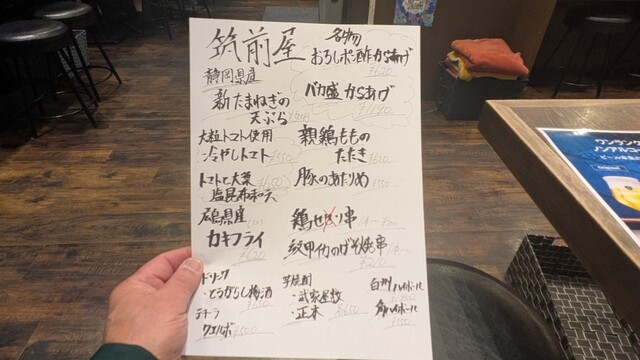 筑前屋
名物
おろしポン酢からあげ
¥620
静岡県産
バカ盛からあげ
¥1190
新たまねぎの
天ぷら
大粒トマト使用
冷やしトマト
¥550
親鶏ももの
たたき
¥620
トマトと大葉
塩昆布和え
豚のあたりめ
広島県産
カキフライ
¥620
鶏せせり串
紋甲イカのげそ焼串
ドリンク
・とうがらし梅酒
テキーラ
クエルボ
¥500
芋焼酎
・武家屋敷
・正木
白州ハイボール
角ハイボール
¥550
ワンランク
ノンアルコ